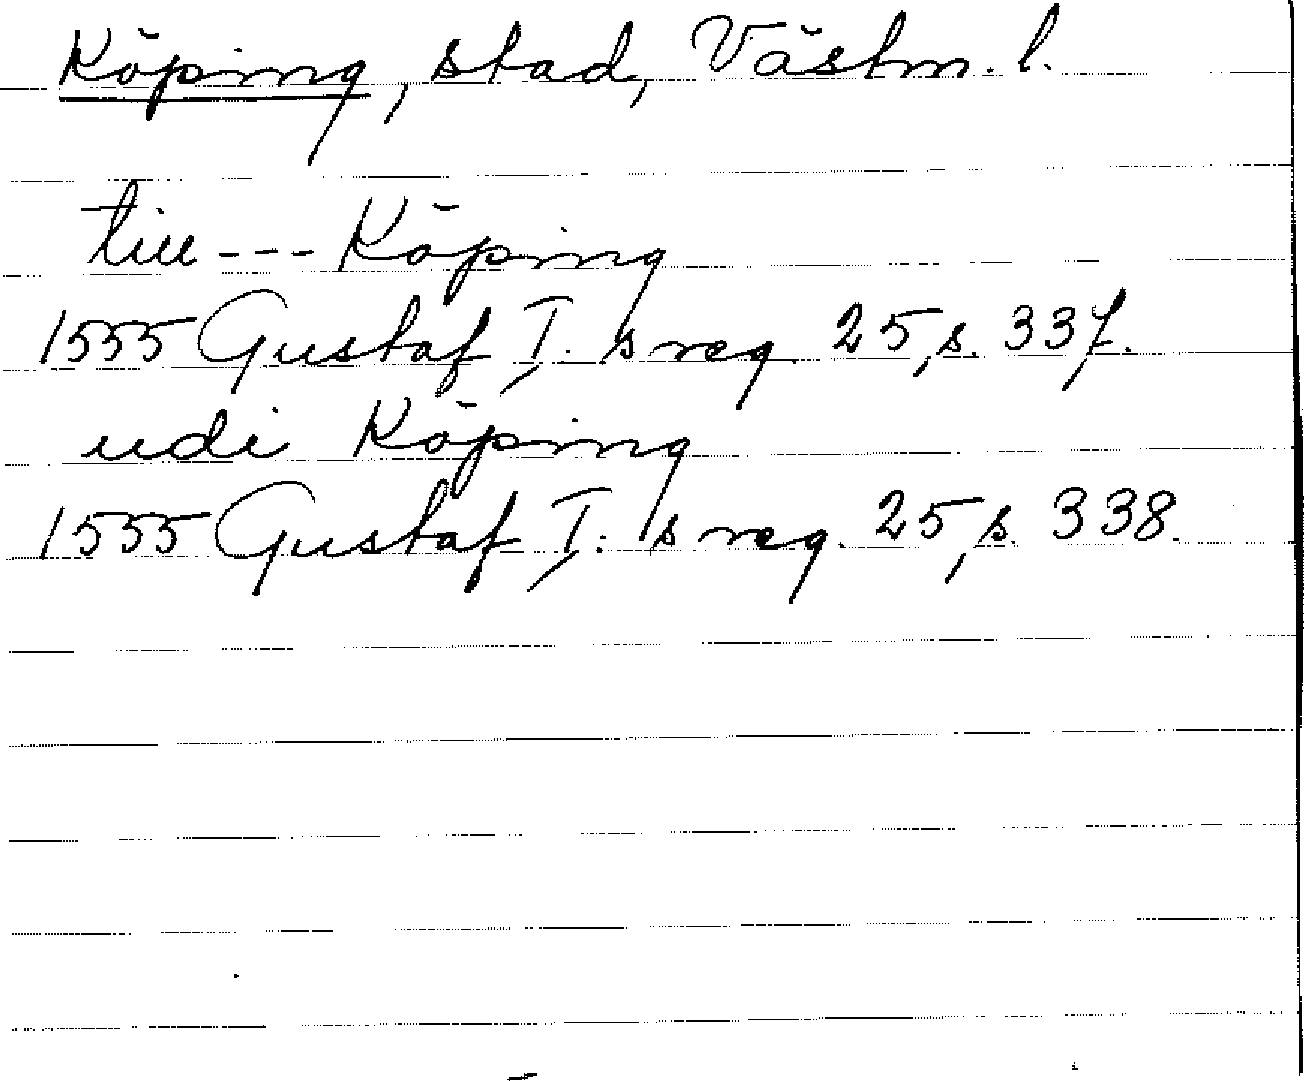 Köping, stad, Västm. l.
till --- Köping
1555 Gustaf I.s reg. 25, s. 337.
udi Köping
1555 Gustaf I.s reg. 25, s. 338.